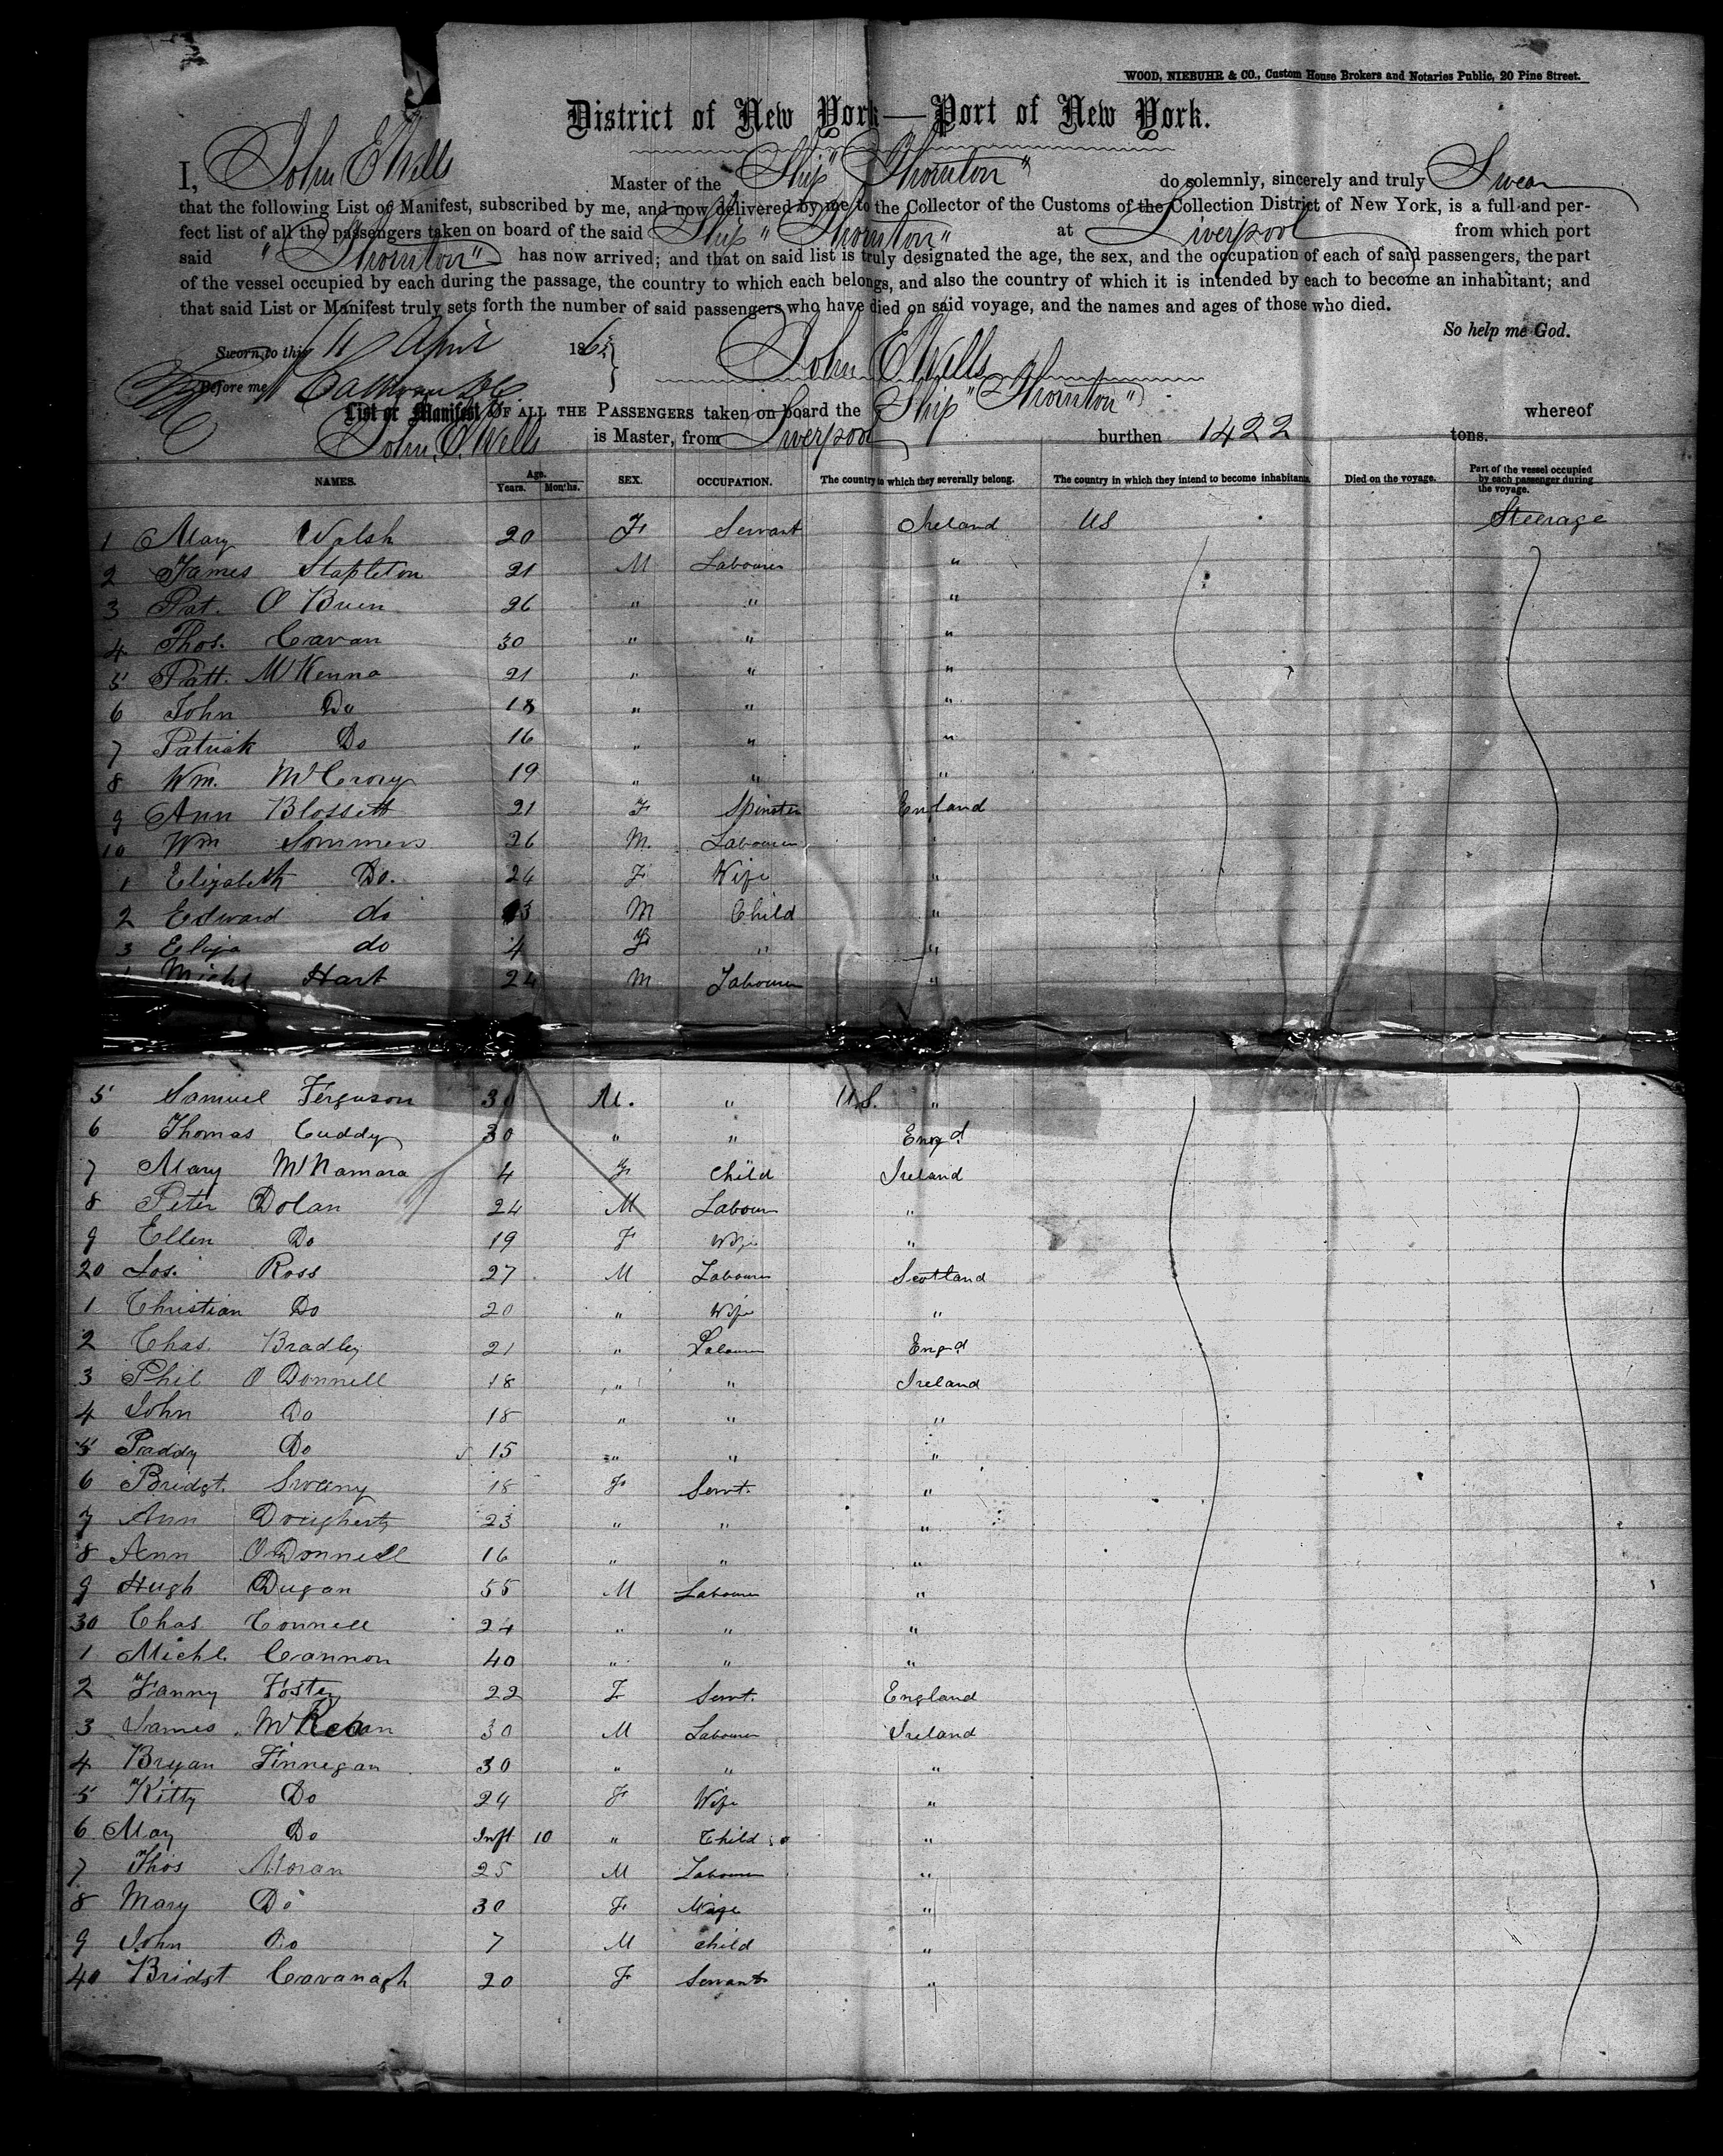 WOOD, NIEBUHR & CO., Custom House Brokers and Notaries Public, 20 Pine Street.
District of New York—Port of New York.
I, John E Wells Master of the Ship "Thornton" do solemnly, sincerely and truly Swear
that the following List or Manifest, subscribed by me, and now delivered by me to the Collector of the Customs of the Collection District of New York, is a full and per-
fect list of all the passengers taken on board of the said Ship "Thornton" at Liverpool from which port
said "Thornton" has now arrived; and that on said list is truly designated the age, the sex, and the occupation of each of said passengers, the part
of the vessel occupied by each during the passage, the country to which each belongs, and also the country of which it is intended by each to become an inhabitant; and
that said List or Manifest truly sets forth the number of said passengers who have died on said voyage, and the names and ages of those who died.
So help me God.
Sworn to this 11 April 186
John E Wells
Before me
List or Manifest OF ALL THE PASSENGERS taken on board the Ship "Thornton" whereof
John E. Wells is Master, from Liverpool burthen 1422 tons.
NAMES. Age. Years. Months. SEX. OCCUPATION. The country to which they severally belong. The country in which they intend to become inhabitants. Died on the voyage. Part of the vessel occupied by each passenger during the voyage.
1 Mary Walsh 20 F Servant Ireland US Steerage
2 James Stapleton 21 M Labourer "
3 Pat. O Brien 26 " " "
4 Thos. Cavan 30 " " "
5 Patt. McKenna 21 " " "
6 John Do 18 " " "
7 Patrick Do 16 " " "
8 Wm. McCrory 19 " " "
9 Ann Blossett 21 F Spinster England
10 Wm Sommers 26 M. Labourer "
1 Elizabeth Do. 24 F Wife "
2 Edward do 3 M Child "
3 Eliza do 4 F " "
Michl Hart 24 M Labourer "
5 Samuel Ferguson 30 M. " U.S. "
6 Thomas Cuddy 30 " " Engd
7 Mary McNamara 4 F Child Ireland
8 Peter Dolan 24 M Labour "
9 Ellen Do 19 F Wife "
20 Jos. Ross 27 M Labourer Scotland
1 Christian Do 20 " Wife "
2 Chas. Bradley 21 " Labourer Engd
3 Phil O Donnell 18 " " Ireland
4 John Do 18 " " "
5 Paddy Do 15 " " "
6 Bridgt. Sweany 18 F Servt. "
7 Ann Dougherty 23 " " "
8 Ann O Donnell 16 " " "
9 Hugh Dugan 55 M Labourer "
30 Chas Connell 24 " " "
1 Michl. Cannon 40 " " "
2 Fanny Foster 22 F Servt. England
3 James 30 M Labourer Ireland
4 Bryan Finnegan 30 " " "
5 Kitty Do 24 F Wife "
6 May Do Inft 10 " Child "
7 Thos Moran 25 M Labourer "
8 Mary Do 30 F Wife "
9 John Do 7 M Child "
40 Bridgt Cavanagh 20 F Servant "